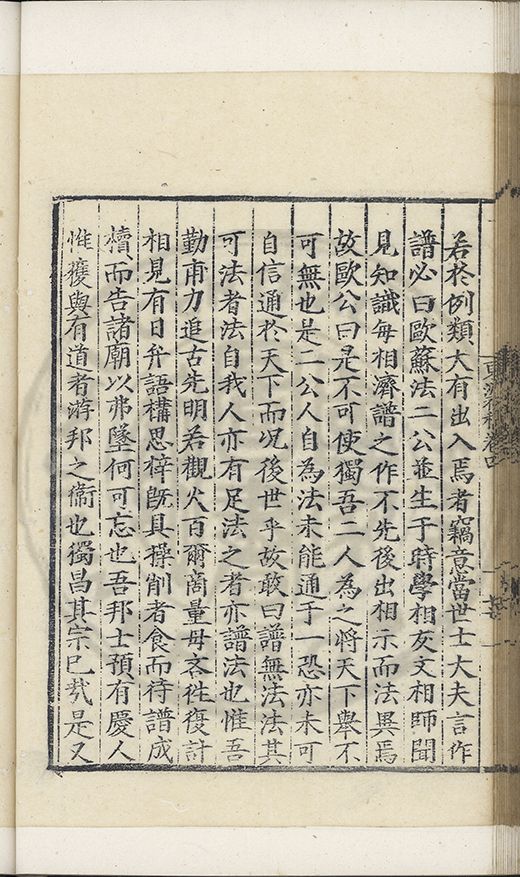 若於例類大有出入焉者竊意當世士大夫言作
譜必曰歐蘇法二公並生于時學相友文相師聞
見知識每相濟譜之作不先後出相示而法異焉
故歐公曰是不可使獨吾二人為之將天下舉不
可無也是二公人自為法未能通于一恐亦未可
自信通於天下而況後世乎故敢曰譜無法法其
可法者法自我人亦有足法之者亦譜法也惟吾
勤甫力追古先明若觀火百爾商量毋吝往復計
相見有日弁語構思梓既具操削者食而待譜成
犢而告諸廟以弗墜何可忘也吾邦士預有慶人
惟穫與有道者游邦之衛也獨昌其宗已哉是又